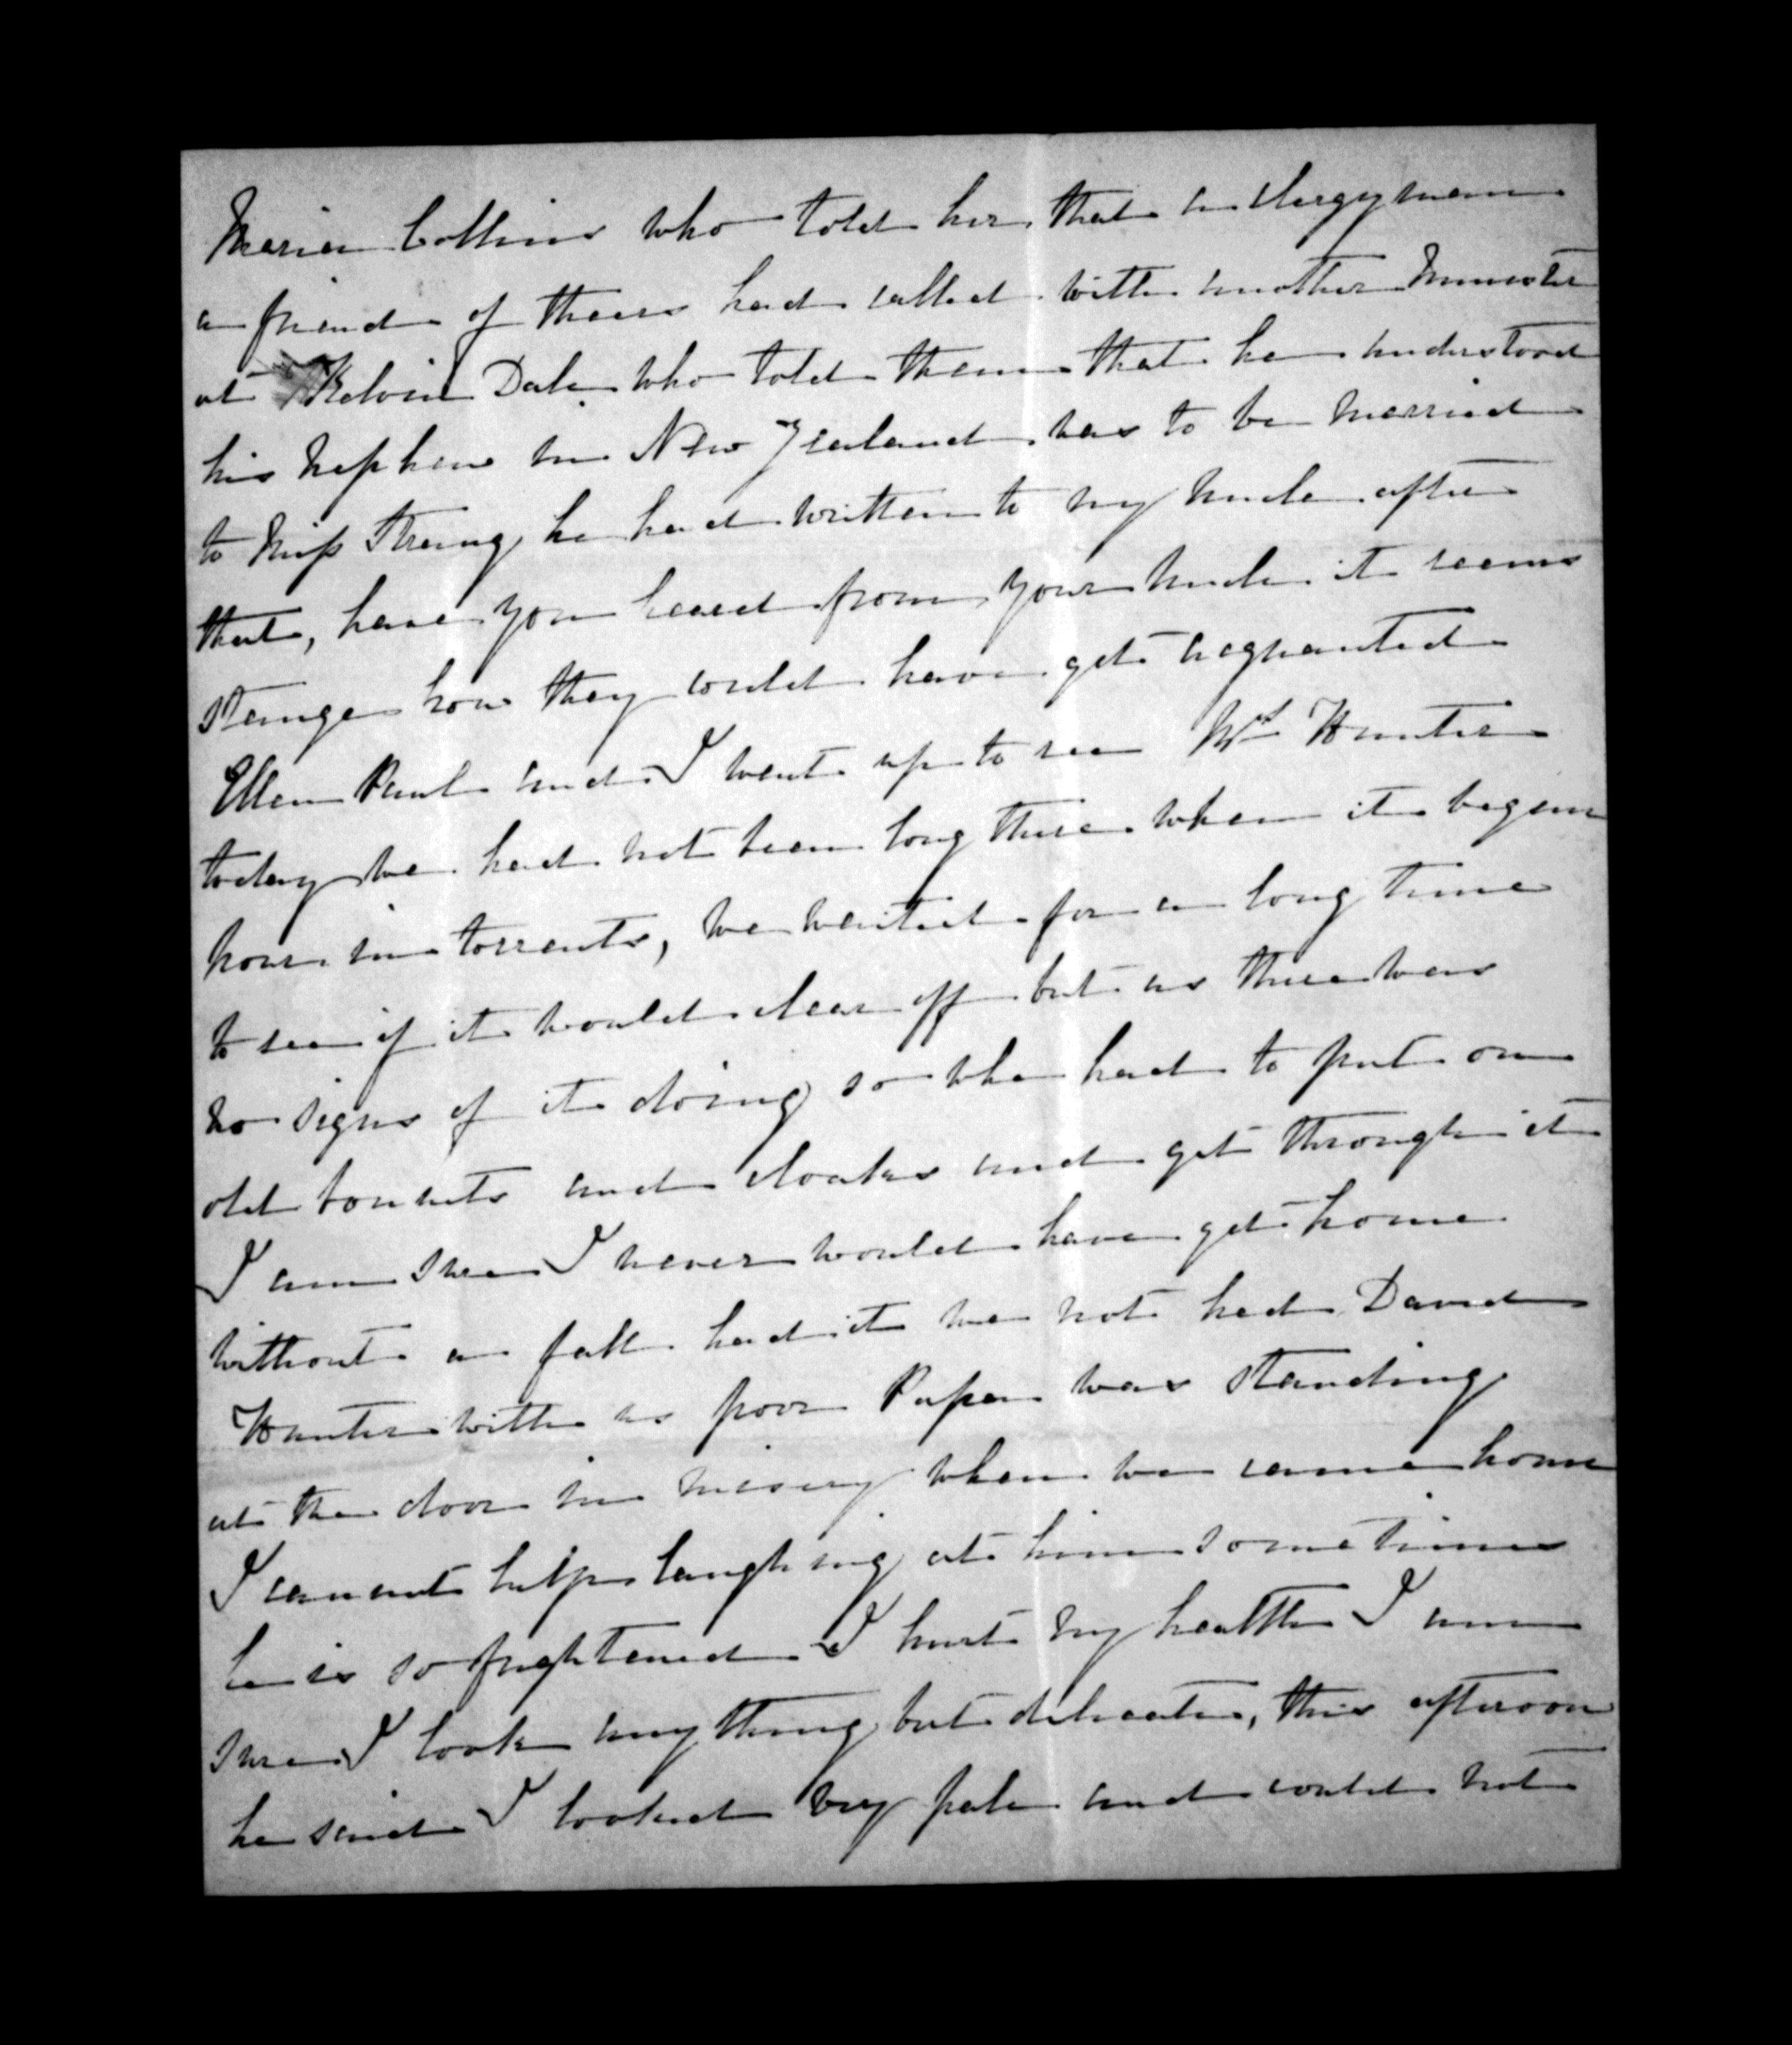 Maria Collins who told her that a clergyman
a friend of theirs had called with another Minister
at Kelvin Dale who told them that he understood
his nephew in New Zealand was to be married
to Miss Strang, he had written to my Uncle after
that, have you heard from your Uncle it seems
stange how they could have get acquanted
Ellen Paul and I went up to see Mrs Hunter
today we had not been long there when it began
pour in torrents, we waited for a long time
to see if it would clear off but as there was
no signs of it doing so whe had to put on
old bonnets and cloaks and get through it
I am sure I never would have get home
without a fall had it we not had David
Hunter with us poor Papa was standing
at the door in misery when we came home
I cannot help laughing at him sometimes
he is so frightened I hurt my health I am
sure I look anything but delicate, this afteroon
he said I looked very pale and could not